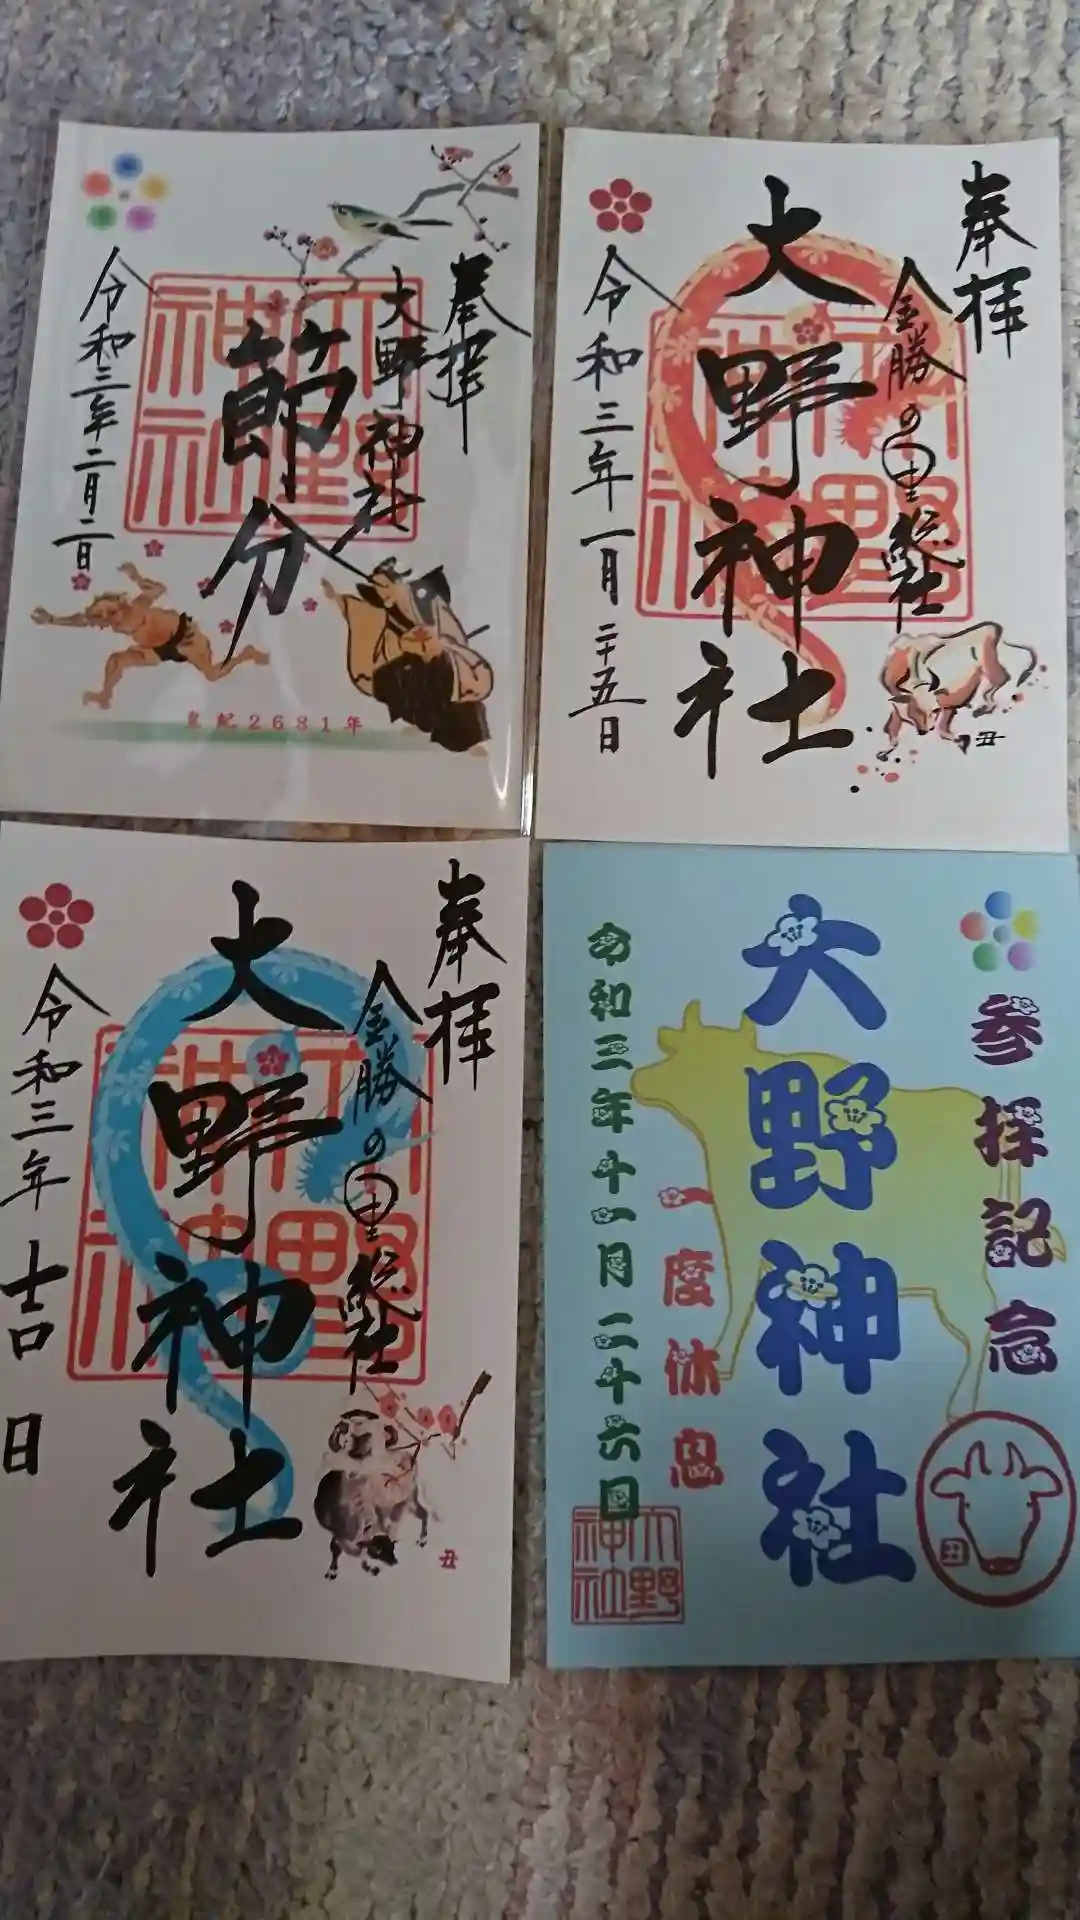 奉拝
大野神社
節分
令和三年二月二日
皇紀2681年
大野神社
奉拝
金勝の里
総社
大野神社
令和三年一月二十五日
丑
大野神社
奉拝
金勝の里
総社
大野神社
令和三年
吉日
丑
大野神社
参拝記念
大野神社
一度休息
令和三年十一月二十六日
大野神社
丑